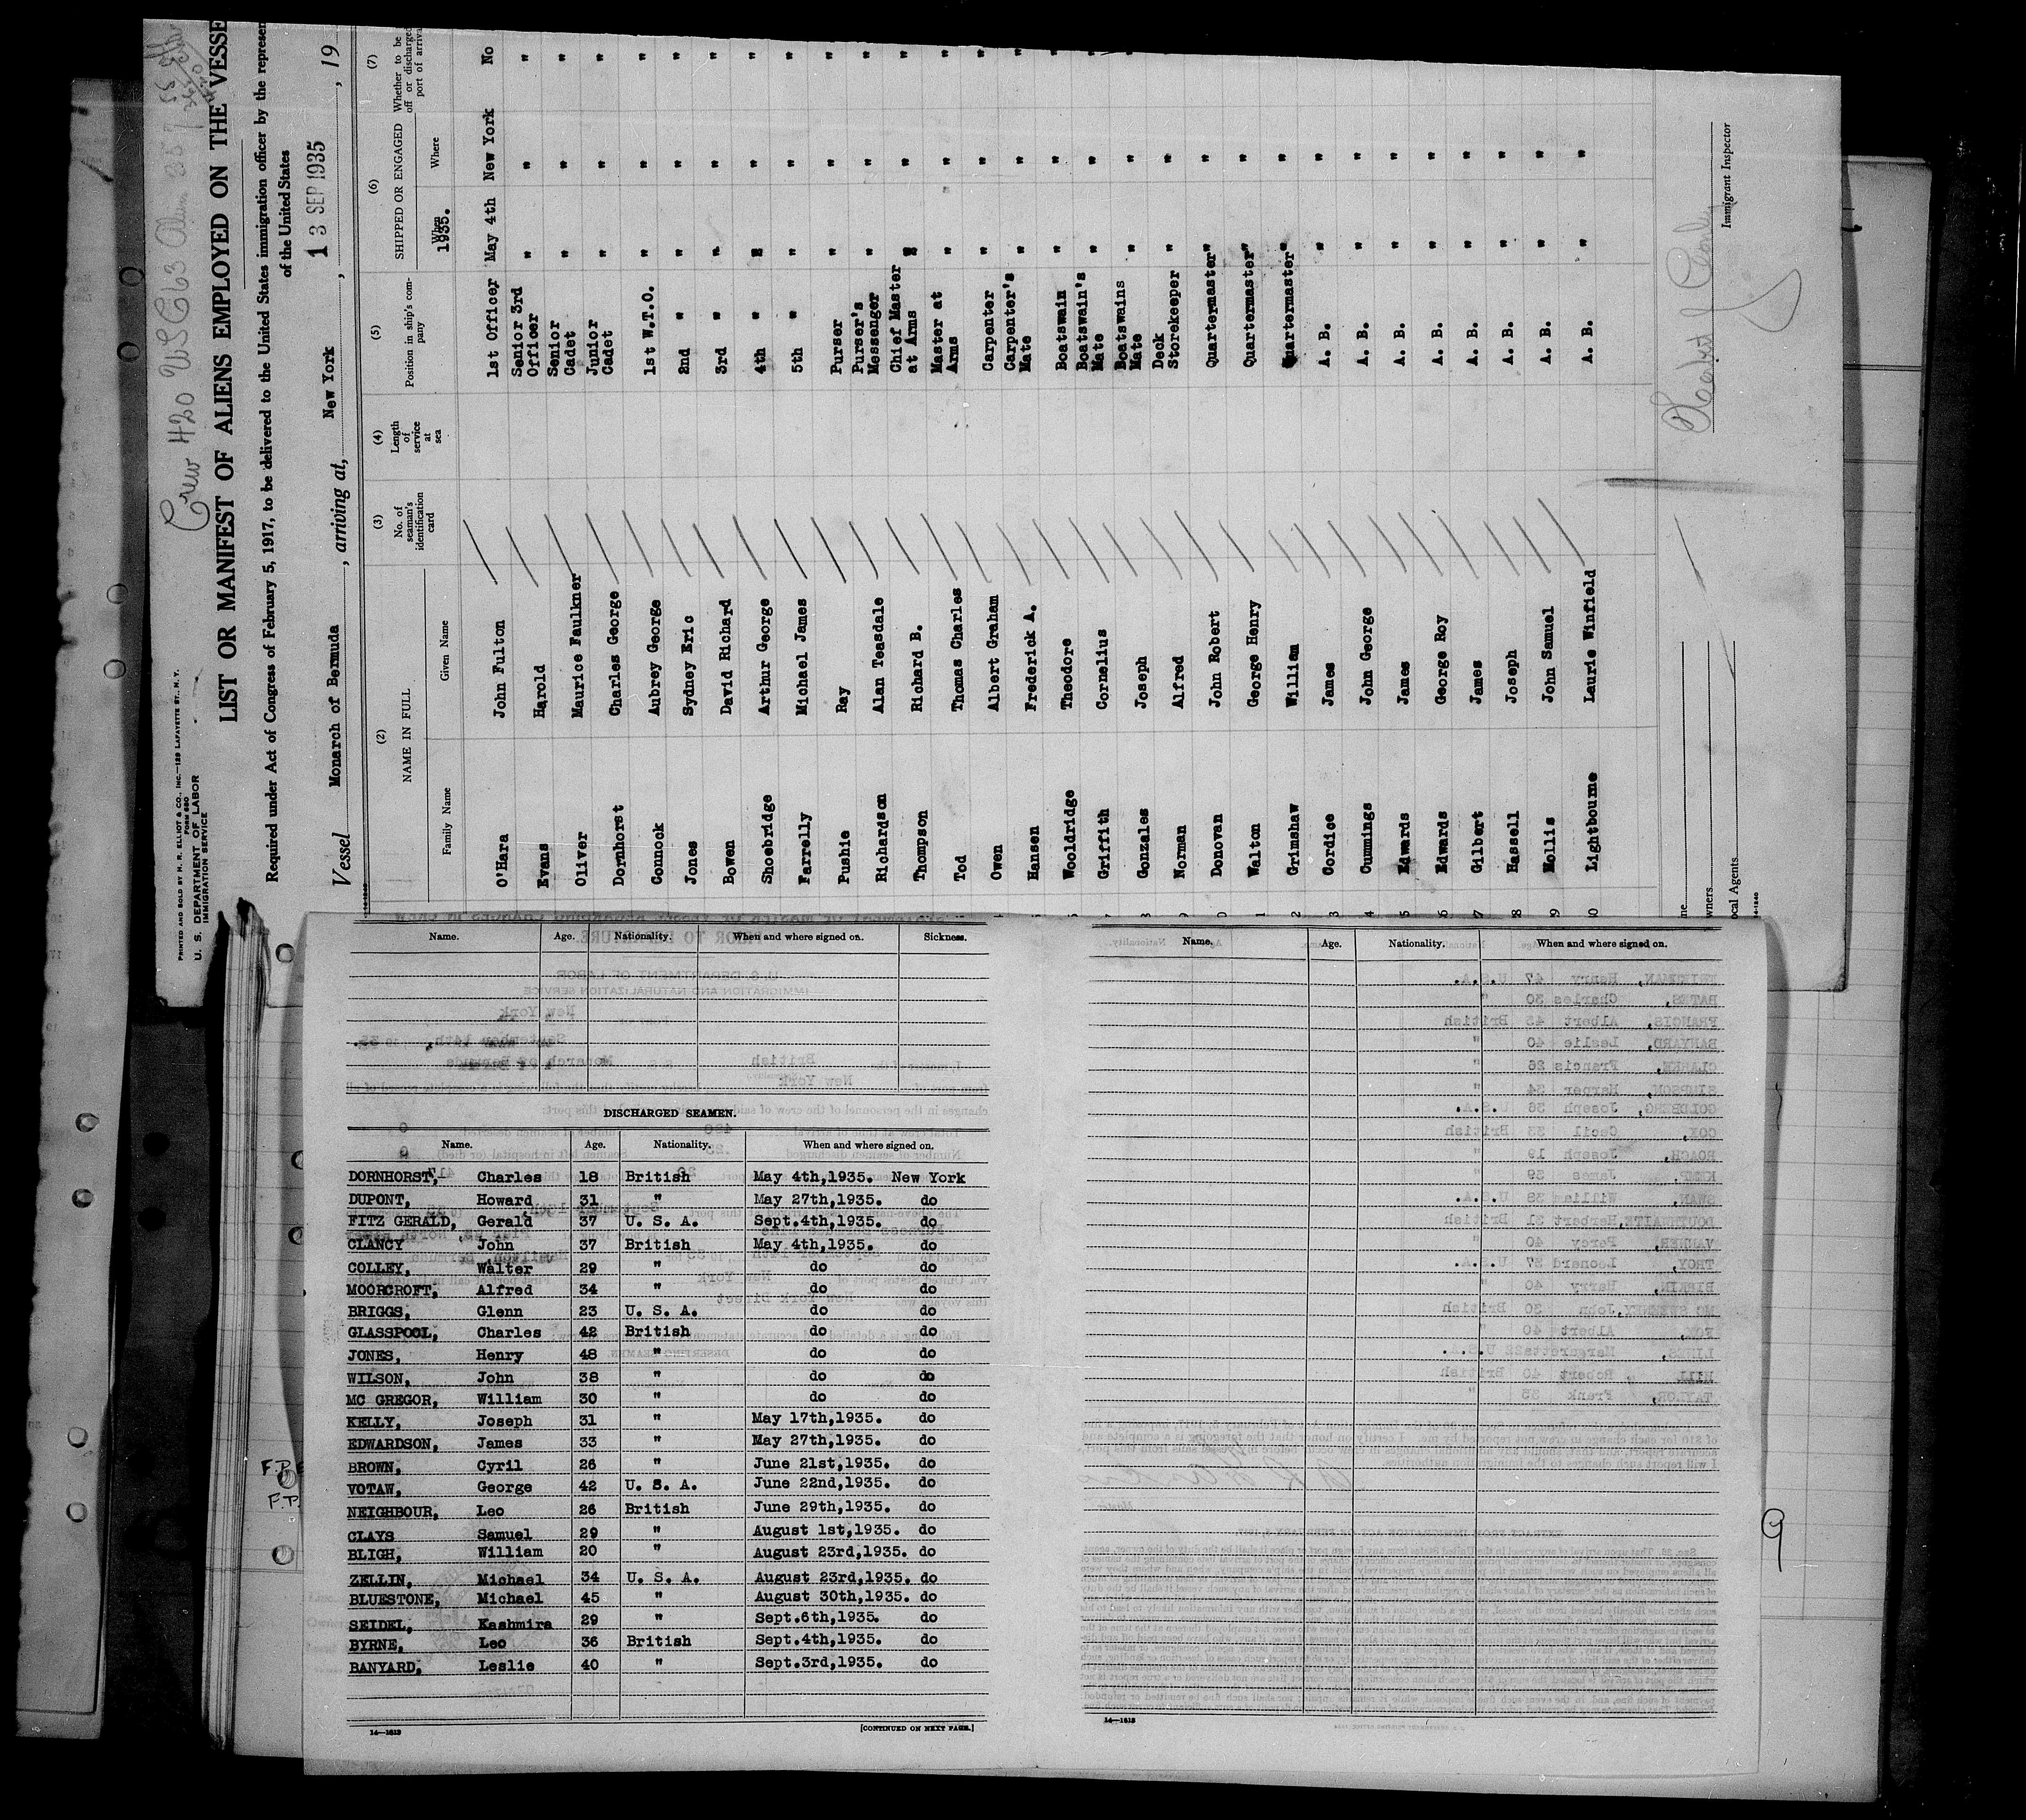 Crew 420 USC 63
PRINTED AND SOLD BY H. R. ELLIOT & CO., INC.—129 LAFAYETTE ST., N. Y.
FORM 680
U. S. DEPARTMENT OF LABOR
IMMIGRATION SERVICE
LIST OR MANIFEST OF ALIENS EMPLOYED ON THE VESSE
Required under Act of Congress of February 5, 1917, to be delivered to the United States immigration officer by the represen
of the United States
Vessel Monarch of Bermuda, arriving at, New York, 13 SEP 1935, 19
(2) (3) (4) (5) (6) (7)
NAME IN FULL No. of seaman's identification card Length of service at sea Position in ship's company SHIPPED OR ENGAGED Whether to be off or discharged port of arriva
Family Name Given Name When Where
1935.
O'Hara John Fulton 1st Officer May 4th New York No
Evans Harold Senior 3rd Officer " " "
Oliver Maurice Faulkner Senior Cadet " " "
Dornhorst Charles George Junior Cadet " " "
Connock Aubrey George 1st W.T.O. " " "
Jones Sydney Eric 2nd " " " "
Bowen David Richard 3rd " " " "
Shoebridge Arthur George 4th " " " "
Farrelly Michael James 5th " " " "
Pushie Ray Purser " " "
Richardson Alan Teasdale Purser's Messenger " " "
Thompson Richard B. Chief Master at Arms " " "
Tod Thomas Charles Master at Arms " " "
Owen Albert Graham Carpenter " " "
Hansen Frederick A. Carpenter's Mate " " "
Wooldridge Theodore Boatswain " " "
Griffith Cornelius Boatswain's Mate " " "
Gonzales Joseph Boatswains Mate " " "
Norman Alfred Deck Storekeeper " "
Donovan John Robert Quartermaster " "
Walton George Henry Quartermaster " "
Grimshaw William Quartermaster " "
Cordice James A. B. " "
Cummings John George A. B. " "
Edwards James A. B. " "
Edwards George Roy A. B. " "
Gilbert James A. B. " "
Hassell Joseph A. B. " "
Hollis John Samuel A. B. " "
Lightbourne Laurie Winfield A. B. " "
Immigrant Inspector
wners
ocal Agents
Name. Age. Nationality. When and where signed on. Sickness.
DISCHARGED SEAMEN.
Name. Age. Nationality. When and where signed on.
DORNHORST, Charles 18 British May 4th,1935. New York
DUPONT, Howard 31 " May 27th,1935. do
FITZ GERALD, Gerald 37 U. S. A. Sept.4th,1935. do
CLANCY John 37 British May 4th,1935. do
COLLEY, Walter 29 " do do
MOORCROFT, Alfred 34 " do do
BRIGGS, Glenn 23 U. S. A. do do
GLASSPOOL, Charles 42 British do do
JONES, Henry 48 " do do
WILSON, John 38 " do do
MC GREGOR, William 30 " do do
KELLY, Joseph 31 " May 17th,1935. do
EDWARDSON, James 33 " May 27th,1935. do
BROWN, Cyril 26 " June 21st,1935. do
VOTAW, George 42 U. S. A. June 22nd,1935. do
NEIGHBOUR, Leo 26 British June 29th,1935. do
CLAYS Samuel 29 " August 1st,1935. do
BLIGH, William 20 " August 23rd,1935. do
ZELLIN, Michael 34 U. S. A. August 23rd,1935. do
BLUESTONE, Michael 45 " August 30th,1935. do
SEIDEL, Kashmira 29 " Sept.6th,1935. do
BYRNE, Leo 36 British Sept.4th,1935. do
BANYARD, Leslie 40 " Sept.3rd,1935. do
14—1613
[CONTINUED ON NEXT PAGE.]
Name. Age. Nationality. When and where signed on.
14—1613
F.P.
F.P.
9